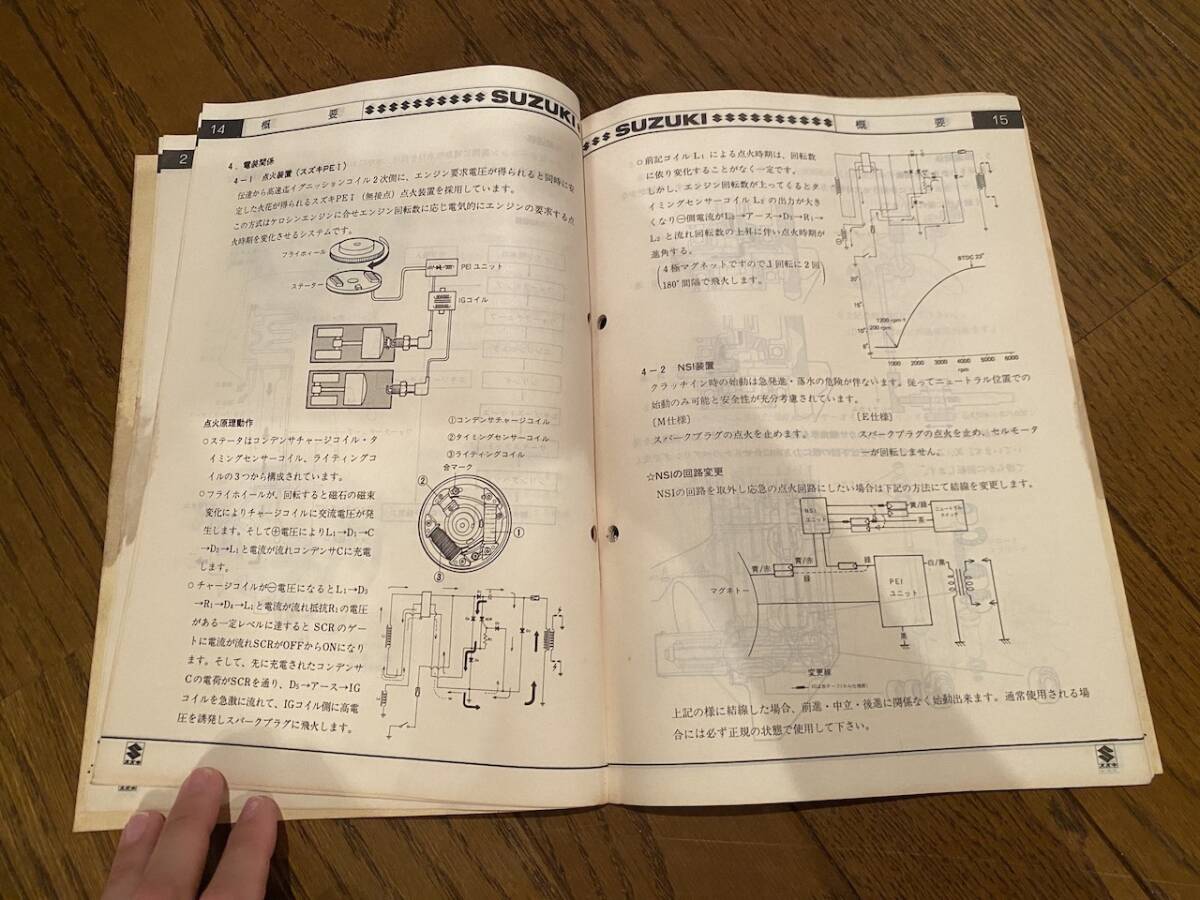 14
概 要
SUZUKI
2
4. 電装関係
4-1 点火装置(スズキPEI)
伝達から高速迄イグニッションコイル2次側に、エンジン要求電圧が得られると同時に安
定した火花が得られるスズキPEI(無接点)点火装置を採用しています。
この方式はケロシンエンジンに合せエンジン回転数に応じ電気的にエンジンの要求する点
火時期を変化させるシステムです。
フライホィール
ステーター
PEIユニット
IGコイル
点火原理動作
○ステータはコンデンサチャージコイル・タ
イミングセンサーコイル、ライティングコ
イルの3つから構成されています。
○フライホイールが、回転すると磁石の磁束
変化によりチャージコイルに交流電圧が発
生します。そして⊕電圧によりL₁→D₁→C
→D₂→L₁と電流が流れコンデンサCに充電
します。
○チャージコイルが⊖電圧になるとL₁→D₃
→R₁→D₄→L₁と電流が流れ抵抗R₁の電圧
がある一定レベルに達するとSCRのゲー
トに電流が流れSCRがOFFからONになり
ます。そして、先に充電されたコンデンサ
Cの電荷がSCRを通り、D₅→アース→IG
コイルを急激に流れて、IGコイル側に高電
圧を誘発しスパークプラグに飛火します。
①コンデンサチャージコイル
②タイミングセンサーコイル
③ライティングコイル
合マーク
②
①
③
スズキ
SUZUKI
概 要
15
○前記コイルL₁による点火時期は、回転数
に依り変化することがなく一定です。
しかし、エンジン回転数が上ってくるとタ
イミングセンサーコイルL₂の出力が大き
くなり⊖側電流がL₂→アース→D₃→R₁→
L₂と流れ回転数の上昇に伴い点火時期が
進角する。
(4極マグネットですので、1回転に2回
180°間隔で飛火します。)
BTDC 23°
1200 rpm
200 rpm
1000 2000 3000 4000 5000 6000
rpm
4-2 NSI装置
クラッチイン時の始動は急発進・落水の危険が伴ないます。従ってニュートラル位置での
始動のみ可能と安全性が充分考慮されています。
[M仕様]
スパークプラグの点火を止めます。
[E仕様]
スパークプラグの点火を止め、セルモータ
ーが回転しません。
☆NSIの回路変更
NSIの回路を取外し応急の点火回路にしたい場合は下記の方法にて結線を変更します。
NSI
ユニット
黄/緑
黒
ニュートラル
スイッチ
黄/赤
黄/赤
緑
緑
マグネトー
PEI
ユニット
白/黒
黒
変更線
上記の様に結線した場合、前進・中立・後進に関係なく始動出来ます。通常使用される場
合には必ず正規の状態で使用して下さい。
スズキ